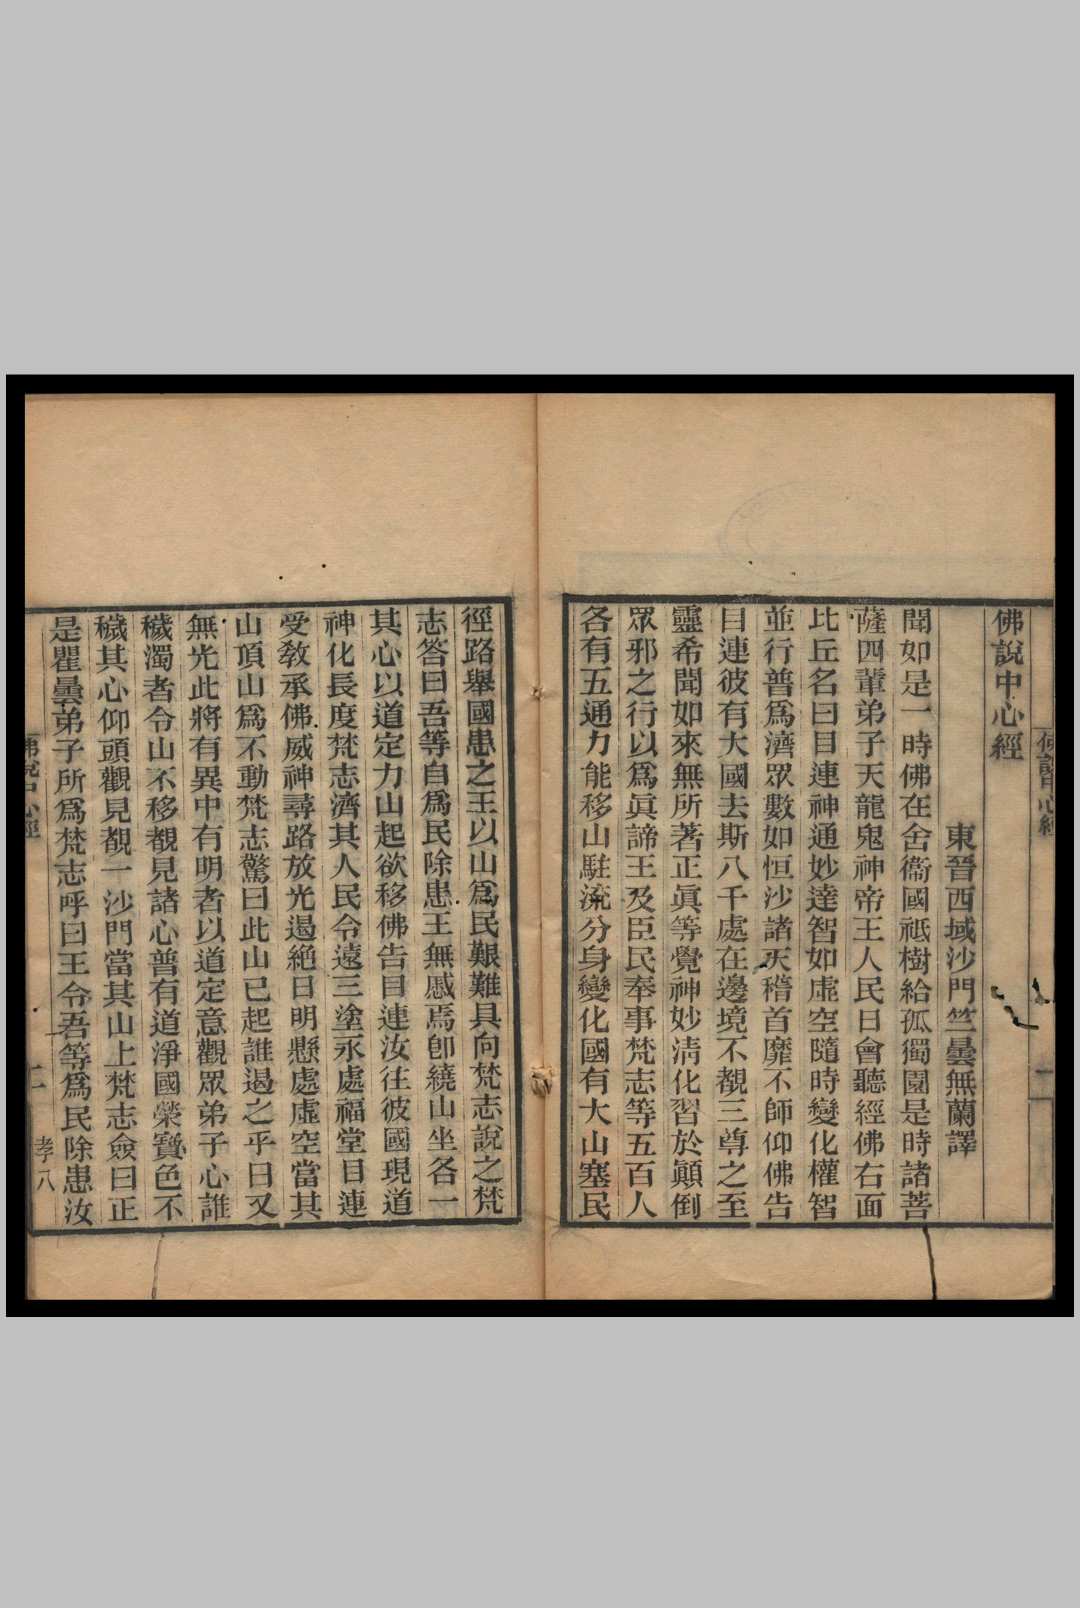 佛說中心經
東晉西域沙門竺曇無蘭譯
聞如是一時佛在舍衞國祗樹給孤獨園是時諸菩
薩四輩弟子天龍鬼神帝王人民日會聽經佛右面
比丘名曰目連神通妙達智如虛空隨時變化權智
並行普爲濟眾數如恒沙諸天稽首靡不師仰佛告
目連彼有大國去斯八千處在邊境不覩三尊之至
靈希聞如來無所著正眞等覺神妙淸化習於顚倒
眾邪之行以爲眞諦王及臣民奉事梵志等五百人
各有五通力能移山駐流分身變化國有大山塞民
徑路舉國患之王以山爲民艱難具向梵志說之梵
志答曰吾等自爲民除患王無慼焉卽繞山坐各一
其心以道定力山起欲移佛告目連汝往彼國現道
神化長度梵志濟其人民令遠三塗永處福堂目連
受敎承佛威神尋路放光遏絶日明懸處虛空當其
山頂山爲不動梵志驚曰此山已起誰遏之乎曰又
無光此將有異中有明者以道定意觀眾弟子心誰
穢濁者令山不移覩見諸心普有道淨國榮寶色不
穢其心仰頭觀見覩一沙門當其山上梵志僉曰正
是瞿曇弟子所爲梵志呼曰王令吾等爲民除患汝
佛說中心經
二
孝八